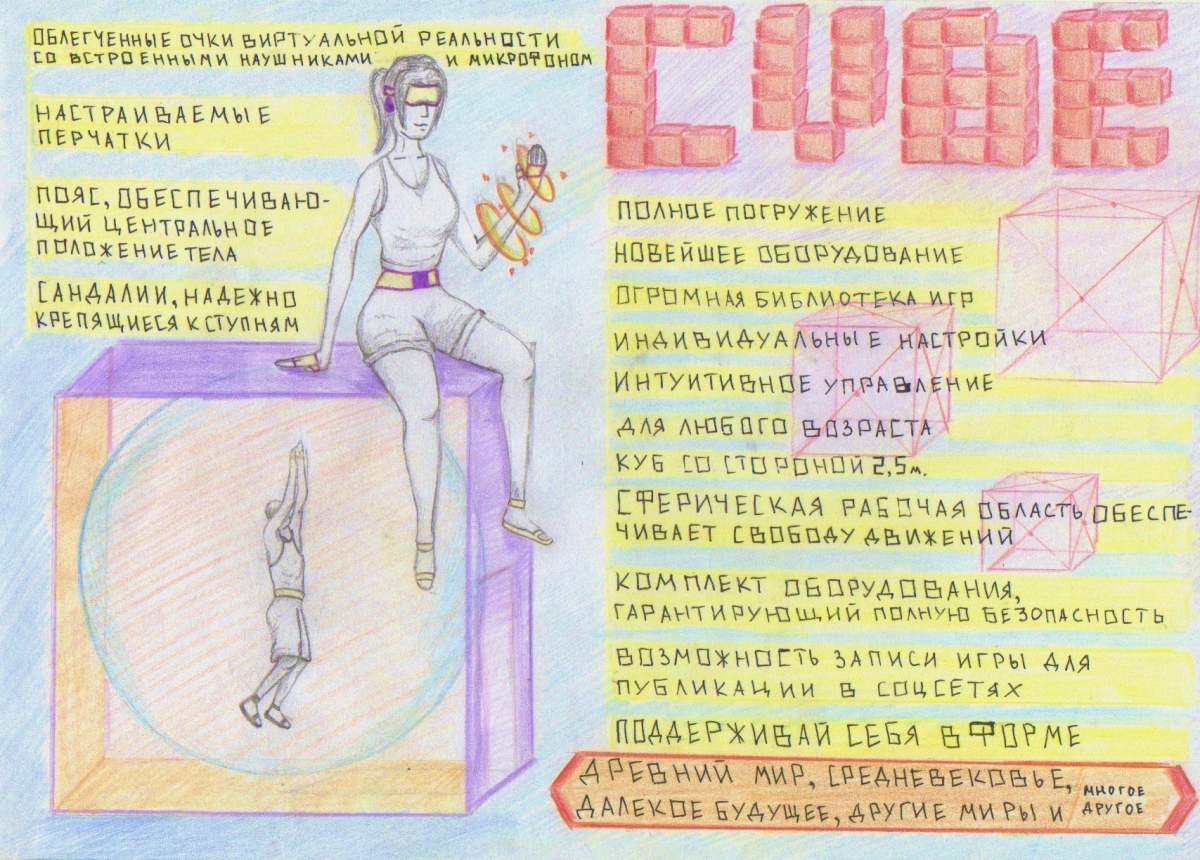 ОБЛЕГЧЕННЫЕ ОЧКИ ВИРТУАЛЬНОЙ РЕАЛЬНОСТИ
СО ВСТРОЕННЫМИ НАУШНИКАМИ И МИКРОФОНОМ
НАСТРАИВАЕМЫЕ
ПЕРЧАТКИ
ПОЯС, ОБЕСПЕЧИВАЮ-
ЩИЙ ЦЕНТРАЛЬНОЕ
ПОЛОЖЕНИЕ ТЕЛА
САНДАЛИИ, НАДЕЖНО
КРЕПЯЩИЕСЯ К СТУПНЯМ
CUBE
ПОЛНОЕ ПОГРУЖЕНИЕ
НОВЕЙШЕЕ ОБОРУДОВАНИЕ
ОГРОМНАЯ БИБЛИОТЕКА ИГР
ИНДИВИДУАЛЬНЫЕ НАСТРОЙКИ
ИНТУИТИВНОЕ УПРАВЛЕНИЕ
ДЛЯ ЛЮБОГО ВОЗРАСТА
КУБ СО СТОРОНОЙ 2,5м.
СФЕРИЧЕСКАЯ РАБОЧАЯ ОБЛАСТЬ ОБЕСПЕ-
ЧИВАЕТ СВОБОДУ ДВИЖЕНИЙ
КОМПЛЕКТ ОБОРУДОВАНИЯ,
ГАРАНТИРУЮЩИЙ ПОЛНУЮ БЕЗОПАСНОСТЬ
ВОЗМОЖНОСТЬ ЗАПИСИ ИГРЫ ДЛЯ
ПУБЛИКАЦИИ В СОЦСЕТЯХ
ПОДДЕРЖИВАЙ СЕБЯ В ФОРМЕ
ДРЕВНИЙ МИР, СРЕДНЕВЕКОВЬЕ,
ДАЛЕКОЕ БУДУЩЕЕ, ДРУГИЕ МИРЫ И
МНОГОЕ
ДРУГОЕ